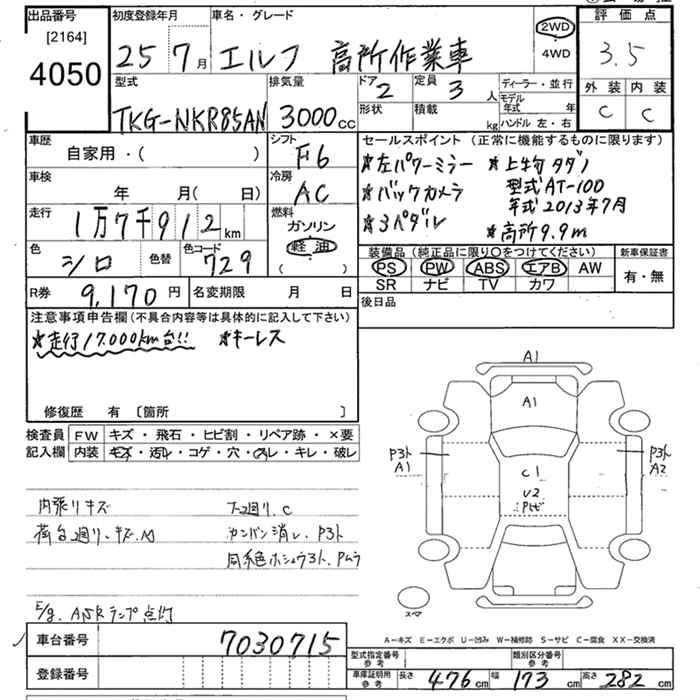 出品番号 初度登録年月 車名・グレード 評価点
[2164]
4050
25 7月 エルフ 高所作業車 2WD 3.5
4WD
外装 内装
C C
型式 排気量 ドア 定員 ディーラー・並行
TKG-NKR85AN 3000cc 2 3人 モデル年式 年
形状 積載 kg ハンドル 左・右
車歴 シフト セールスポイント(正常に機能するものに限ります)
自家用・( ) F6 ★左パワーミラー ★上物タダノ
車検 冷房 ★バックカメラ 型式AT-100
年 月( 日) AC 年式2013年7月
走行 燃料 ★3ペダル ★高所9.9m
1万7千912km ガソリン
軽油
( )
色 色替 色コード
シロ 729
装備品(純正品に限り○をつけてください) 新車保証書
PS PW ABS エアB AW 有・無
SR ナビ TV カワ
R券 9,170円 名変期限 月 日 後日品
注意事項申告欄(不具合内容等は具体的に記入して下さい)
★走行17.000km台!! ★キーレス
修復歴 有 〔箇所 〕
検査員記入欄 FW キズ・飛石・ヒビ割・リペア跡・×要
内装 キズ・汚レ・コゲ・穴・スレ・キレ・破レ
A1
A1
P3ト
A1
P3ト
A2
C1
U2
Pトビ
スペア
内張リキズ
荷台廻リ.キズ.M カンバン消し.P3ト
E/g. ランプ点灯
A-キズ E-エクボ U-凹み W-補修跡 S-サビ C-腐食 XX-交換済
車台番号 7030715
登録番号
型式指定番号 参考 類別区分番号 参考
車庫証明用 参考 長さ 476cm 幅 173cm 高さ 282cm